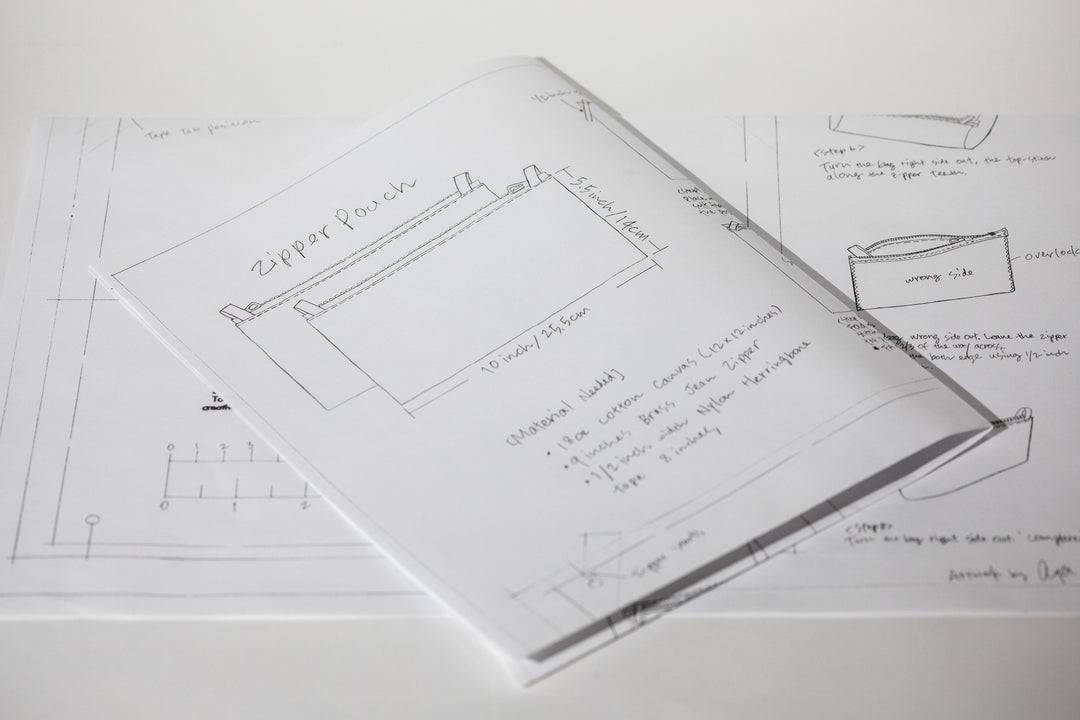 Zipper Pouch
5.5inch/14cm
10inch/25.5cm
[Material Needed]
• 18oz cotton canvas (12x12inches)
• 9inches Brass Jean Zipper
• 1/2inch width Nylon Herringbone
tape 8inches
Tape Tab position
To
0 1 2 3
0 1 2
1/2inch
<Step6>
Turn the bag right side out, the top-stitch
along the zipper teeth.
wrong side
overlock
bag, wrong side out. Leave the zipper
of the way across.
both edge using 1/2 inch
<Step8>
Turn the bag right side out.
Artwork by Aya